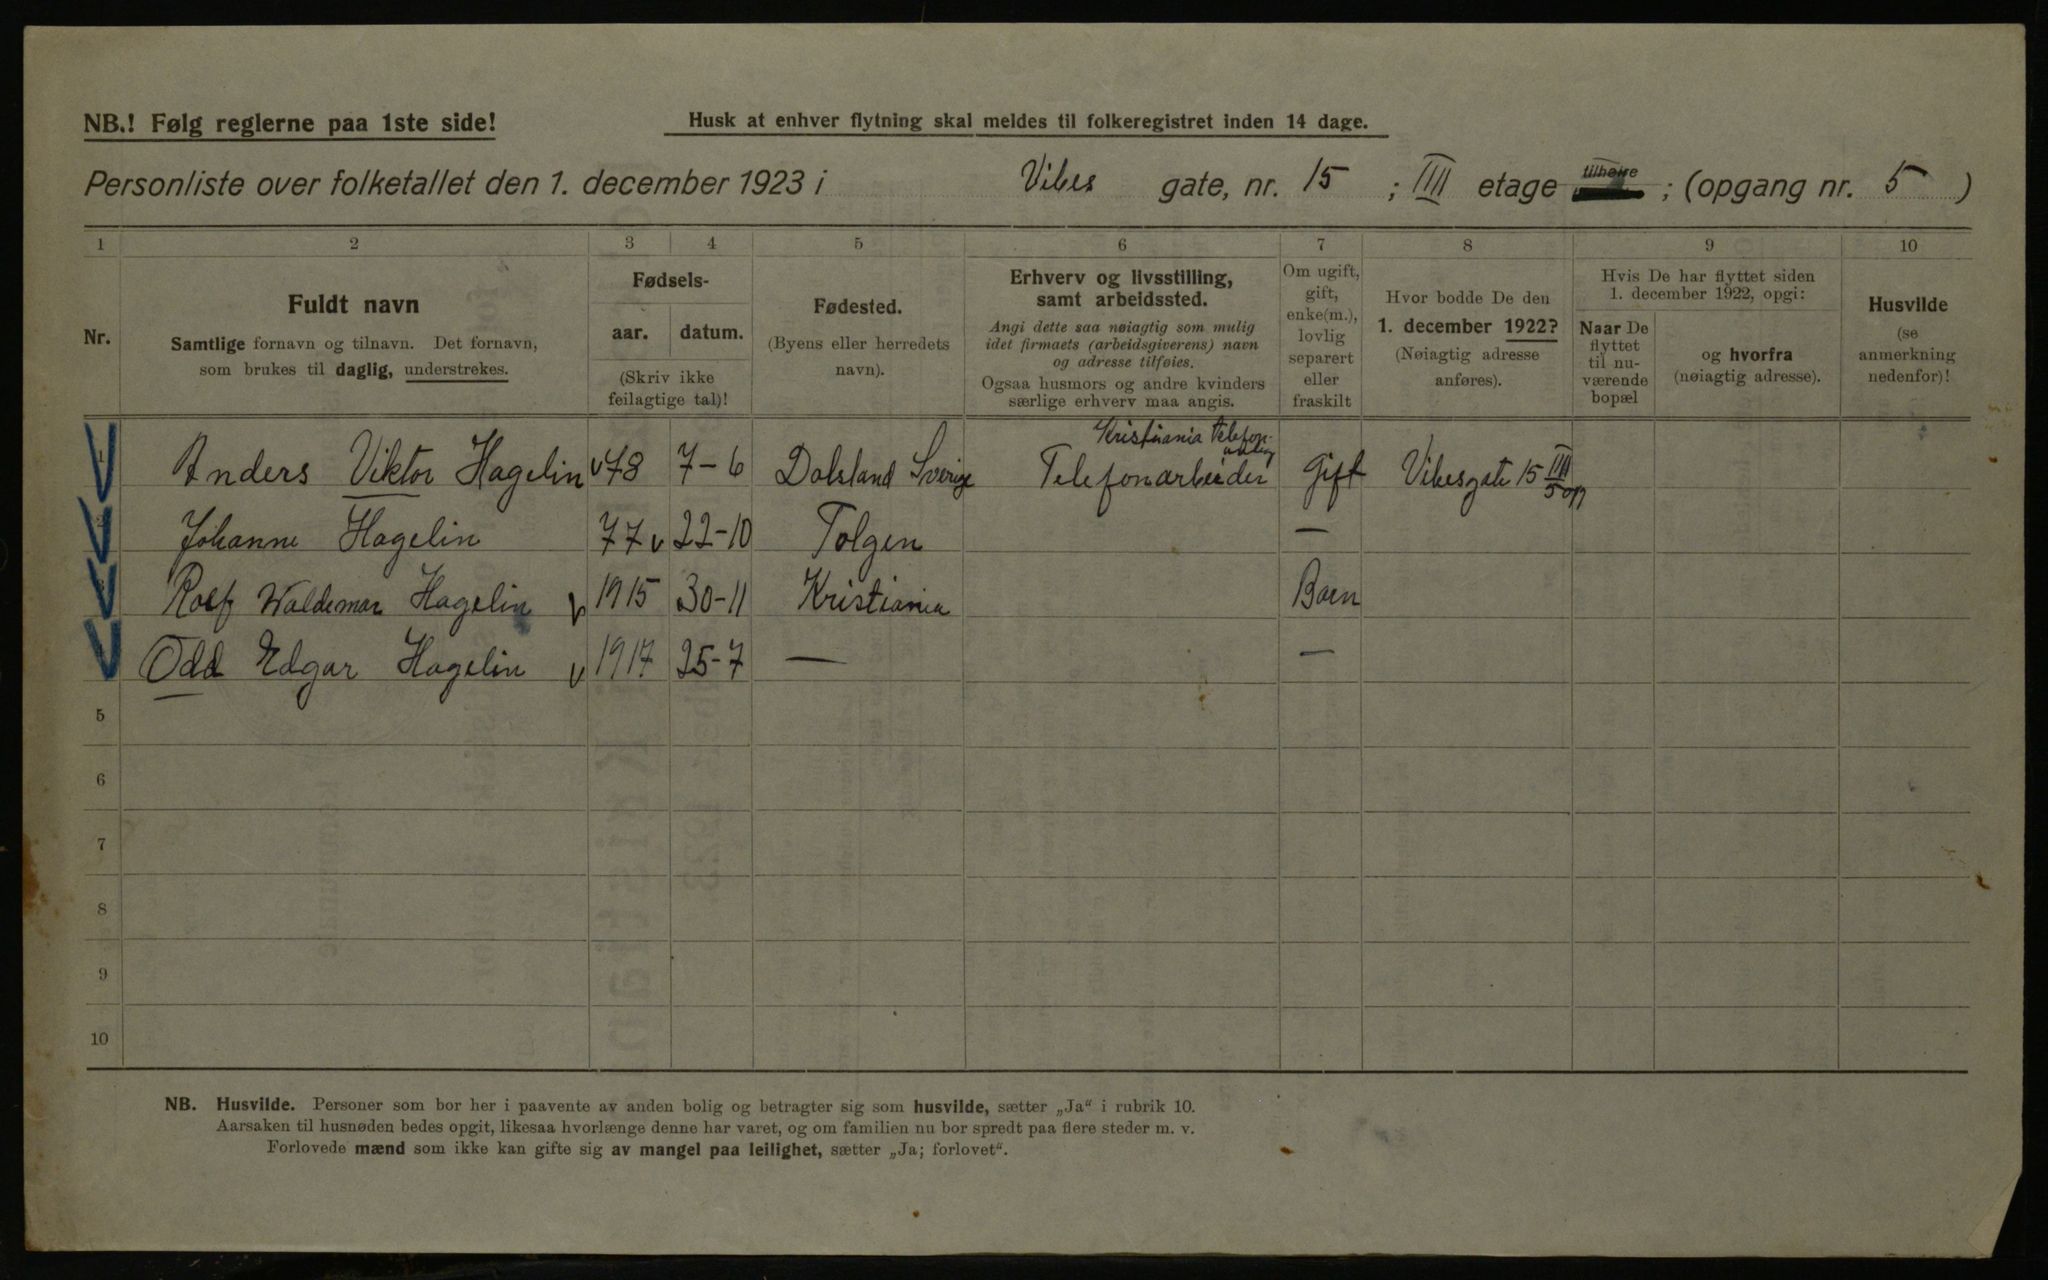 NB.! Følg reglerne paa 1ste side!
Husk at enhver flytning skal meldes til folkeregistret inden 14 dage.
Personliste over folketallet den 1. december 1923 i Vibes gate, nr. 15 ; IIII etage tilhøire ; (opgang nr. 5 )
1 2 3 4 5 6 7 8 9 10
Nr.
Fuldt navn
Samtlige fornavn og tilnavn. Det fornavn,
som brukes til daglig, understrekes.
Fødsels-
aar. datum.
(Skriv ikke
feilagtige tal)!
Fødested.
(Byens eller herredets
navn).
Erhverv og livsstilling,
samt arbeidssted.
Angi dette saa nøiagtig som mulig
idet firmaets (arbeidsgiverens) navn
og adresse tilføies.
Ogsaa husmors og andre kvinders
særlige erhverv maa angis.
Om ugift,
gift,
enke(m.),
lovlig
separert
eller
fraskilt
Hvor bodde De den
1. december 1922?
(Nøiagtig adresse
anføres).
Hvis De har flyttet siden
1. december 1922, opgi:
Naar De
flyttet
til nu-
værende
bopæl
og hvorfra
(nøiagtig adresse).
Husvilde
(se
anmerkning
nedenfor)!
Kristiania Telefon-
Anders Viktor Hagelin v 78 7-6 Dalsland Sverige Telefonarbeider Gift Vibesgate 15 IIII 5 op
Johanne Hagelin 77 v 22-10 Tolgen —
Rolf Waldemar Hagelin v 1915 30-11 Kristiania Barn
Odd Edgar Hagelin v 1917 25-7 — —
5
6
7
8
9
10
NB. Husvilde. Personer som bor her i paavente av anden bolig og betragter sig som husvilde, sætter „Ja“ i rubrik 10.
Aarsaken til husnøden bedes opgit, likesaa hvorlænge denne har varet, og om familien nu bor spredt paa flere steder m. v.
Forlovede mænd som ikke kan gifte sig av mangel paa leilighet, sætter „Ja; forlovet“.